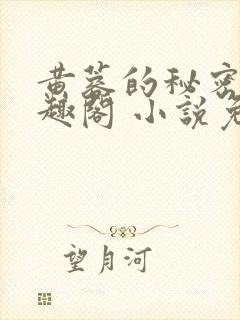 黄墓的秘密
趣阁 小说免
望月河